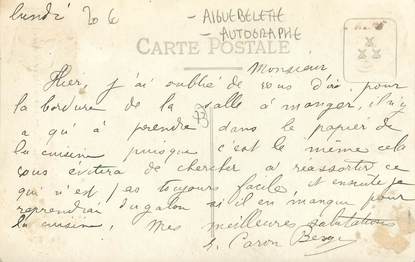 lundi 20 6
- AIGUEBELETTE
- AUTOGRAPHE
CARTE POSTALE
Monsieur
Hier, j'ai oublié de vous dire pour
la bordure de la salle à manger, il n'y
a qu'à prendre dans le papier de
la cuisine puisque c'est le même cela
vous évitera de chercher a réassortir ce
qui n'est pas toujours facile et ensuite je
reprendrai du galon si il en manque pour
la cuisine, Mes meilleures salutations
Caron
73